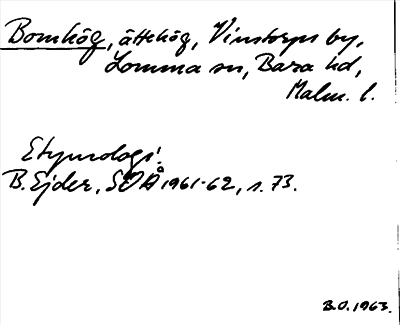 Bomhög, ättehög, Vinstorps by,
Lomma sn, Bara hd,
Malm. l.
Etymologi:
B. Ejder, SOÅ 1961-62, s. 73.
B.O. 1963.